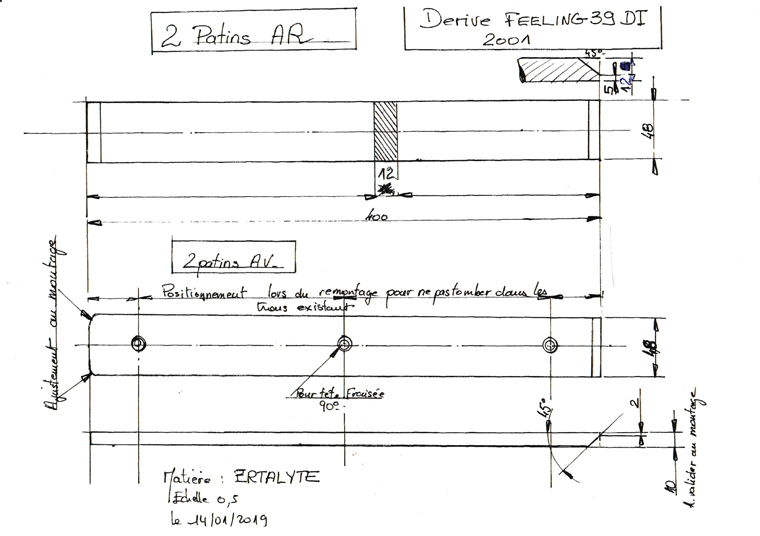 2 Patins AR
Derive FEELING-39 DI
2001
45°
5
12
48
12
400
2 patins AV.
Ajustement au montage
Positionnement lors du remontage pour ne pas tomber dans les
trous existant
48
Pour tête Fraisée
90°
45°
2
10
A valider au montage
Matière : ERTALYTE
Echelle 0,5
le 14/01/2019